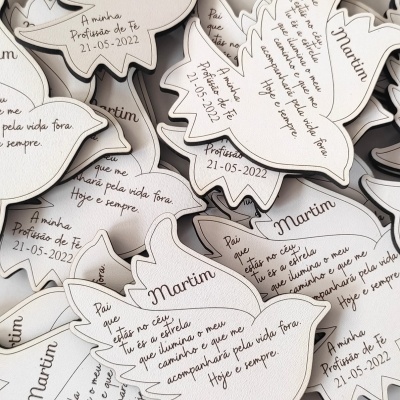 A minha
Profissão de Fé
21-05-2022
Pai
que
estás no céu,
tu és a estrela
que ilumina o meu
caminho e que me
acompanhará pela vida fora.
Hoje e sempre.
Martim
A minha
Profissão de Fé
21-05-2022
Martim
pela vida fora.
e sempre.
acompanhará pela vida fora.
Hoje e sempre.
Profissão
21-05-2022
A minha
Profissão de Fé
21-05-2022
Martim
Pai
que
estás no céu,
tu és a estrela
que ilumina o meu
caminho e que me
acompanhará pela vida fora.
Hoje e sempre.
Martim
Pai
que
estás no céu,
tu és a estrela
que ilumina o meu
caminho e que me
acompanhará pela vida fora.
Hoje e sempre.
A minha
Profissão de Fé
21-05-2022
Martim